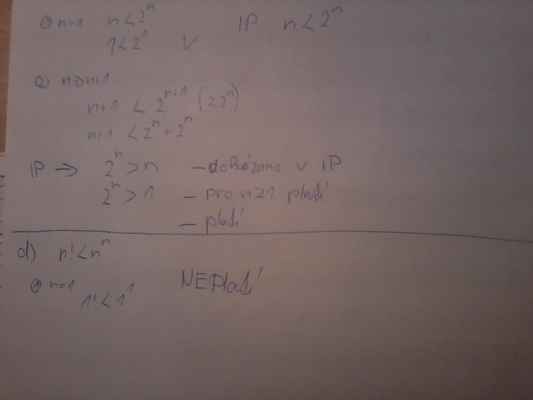 ① n=1 n<2ⁿ IP n<2ⁿ
1<2¹ V
② n→n+1
n+1 < 2ⁿ⁺¹ (2·2ⁿ)
n+1 < 2ⁿ+2ⁿ
IP → 2ⁿ>n – dokázáno v IP
2ⁿ>1 – pro n≥1 platí
– platí
d) n!<nⁿ
① n=1 NEPlatí
1!<1¹